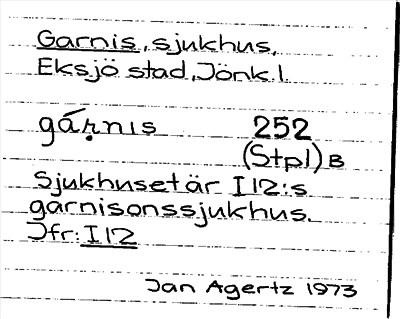 Garnis, sjukhus,
Eksjö stad, Jönk.l.
gáṛnis 252
(Stpl) B
Sjukhuset är I 12:s
garnisonssjukhus.
Jfr: I 12
Jan Agertz 1973